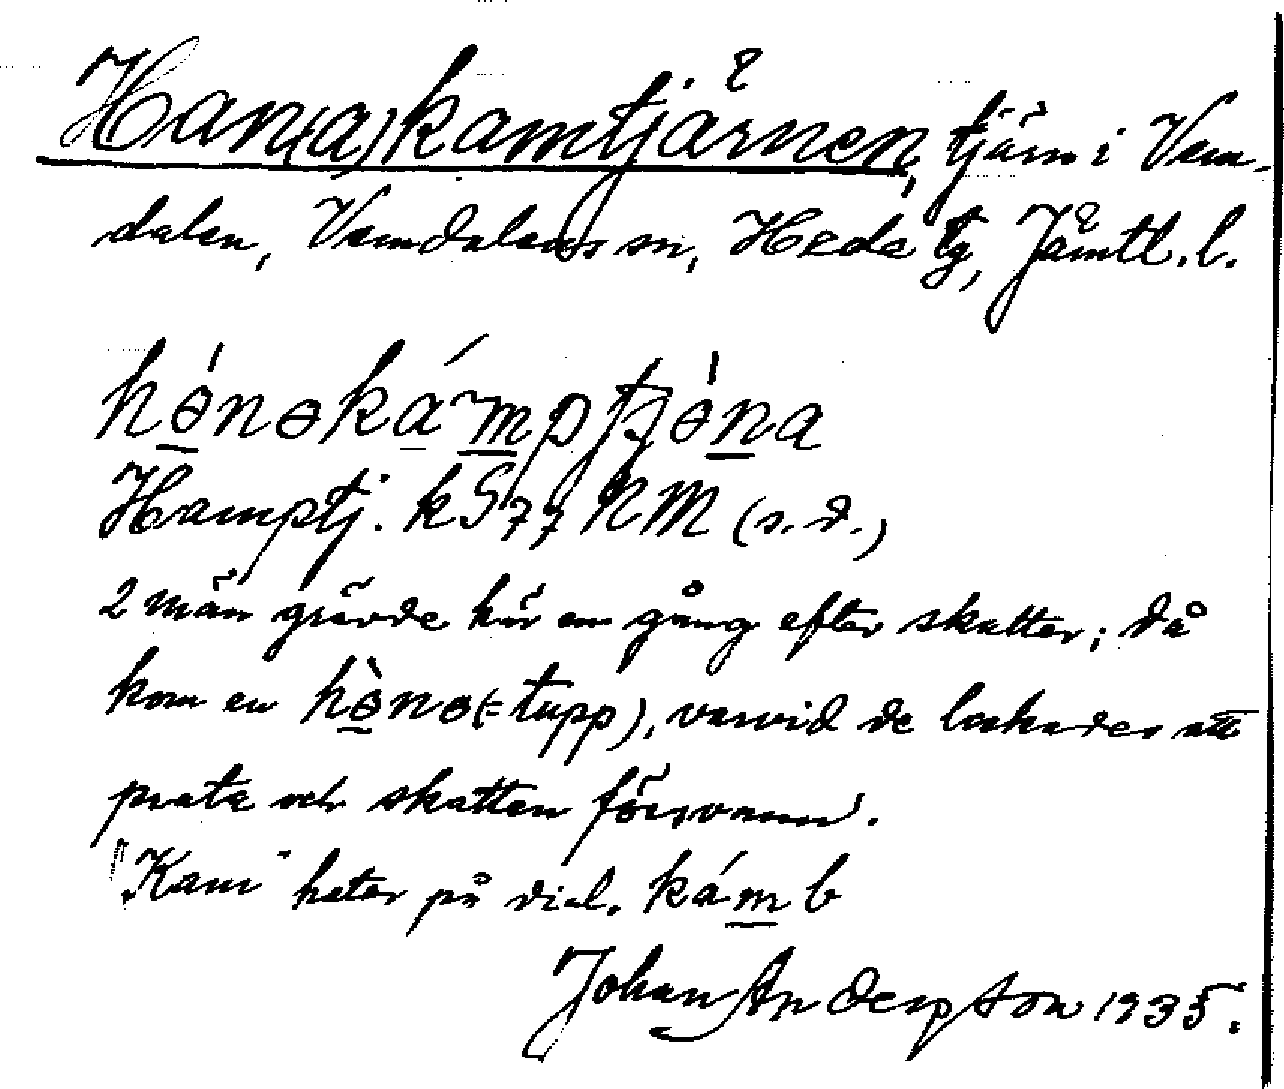 Han(a)kamtjärnen, tjärn i Vem-
dalen, Vemdalens sn, Hede tg, Jämtl. l.
hə́nəkámptjə́na
Hamptj. kS77 NM (s. d.)
2 män grävde här en gång efter skatter; då
kom en hə̀nə (= tupp), varvid de lockades att
prata och skatten försvann.
"Kam" heter på dial. kámb
Johan Anderson 1935.